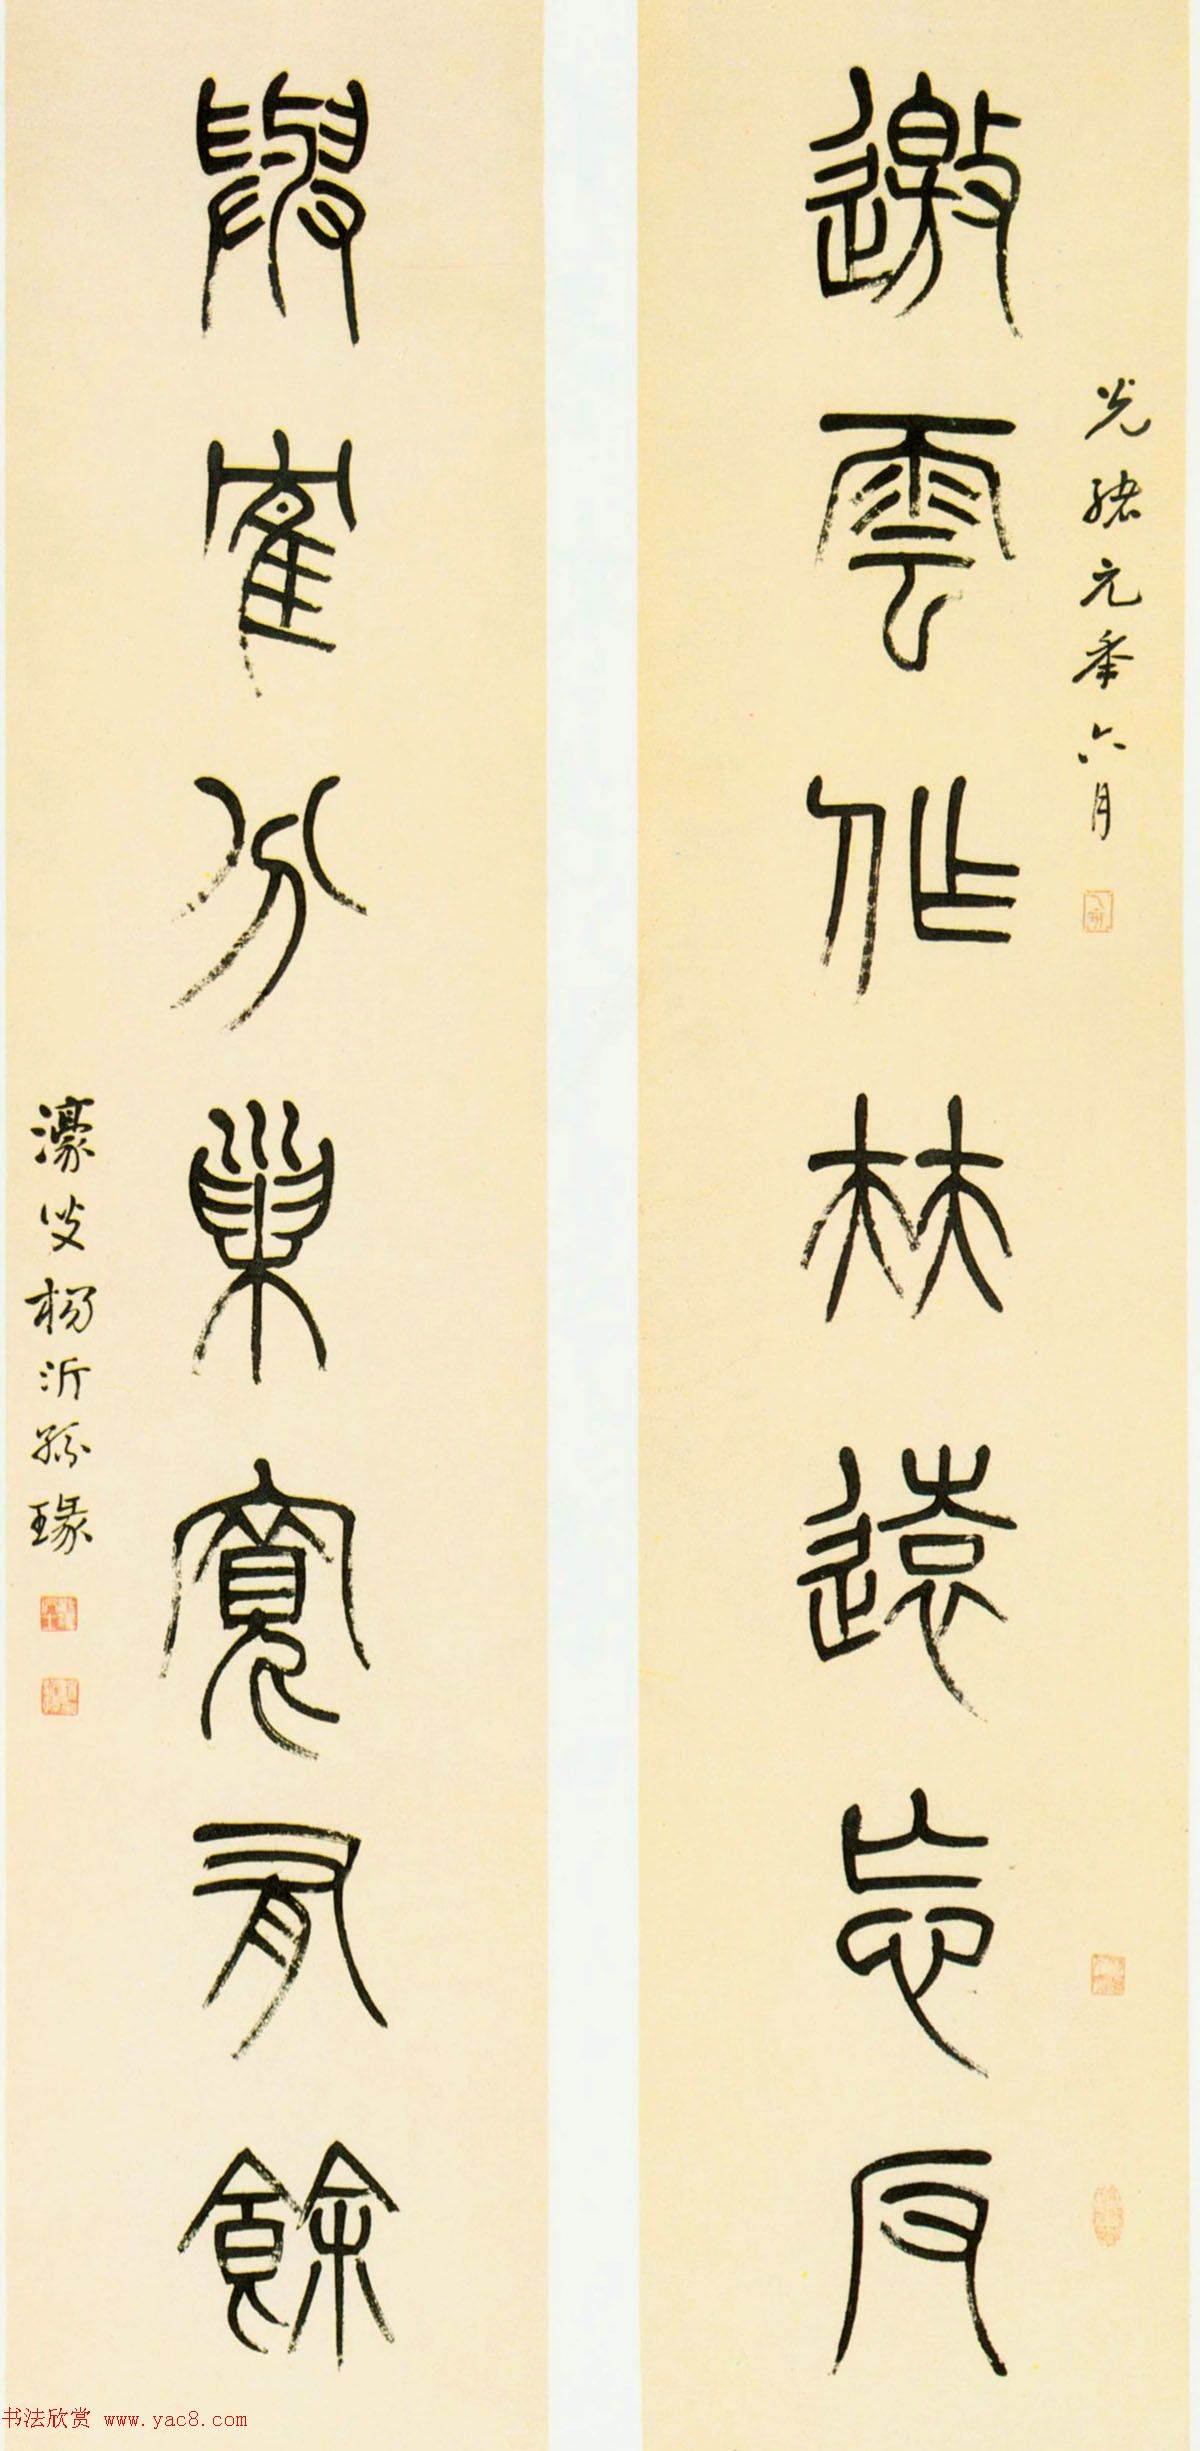 光緒元年六月
邀雲作林遠忘反
與隺分巢寬有餘
濠叟楊沂孫瑑
书法欣赏 www.yac8.com